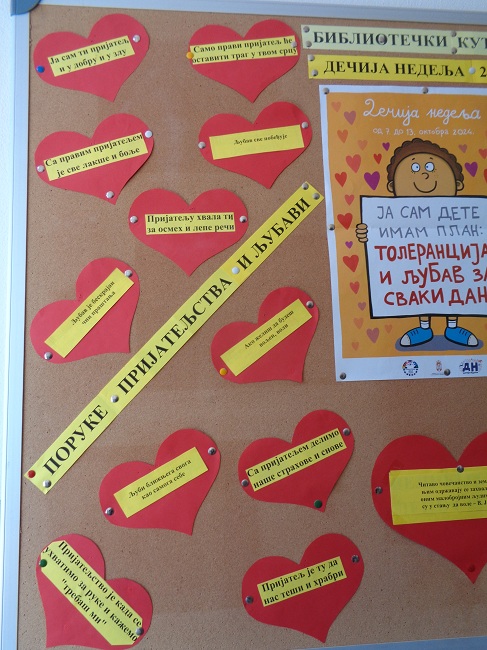 Ја сам ти пријатељ
и у добру и у злу
Само прави пријатељ ће
оставити траг у твом срцу
БИБЛИОТЕЧКИ КУТ
ДЕЧИЈА НЕДЕЉА 2
Дечија недеља
од 7. до 13. октобра 2024.
ЈА САМ ДЕТЕ
ИМАМ ПЛАН:
ТОЛЕРАНЦИЈА
И ЉУБАВ ЗА
СВАКИ ДАН
Са правим пријатељем
је све лакше и боље
Љубав све побеђује
Пријатељу хвала ти
за осмех и лепе речи
ПОРУКЕ ПРИЈАТЕЉСТВА И ЉУБАВИ
Љубав је бескрајан
чин праштања
Ако желиш да будеш
вољен, воли
Љуби ближњега свога
као самога себе
Са пријатељем делимо
наше страхове и снове
Читаво човечанство и зем
њим одржавају се захваљ
оним малобројним људим
су у стању да воле - В. Ј
Пријатељство је када се
ухватимо за руке и кажемо
"требаш ми"
Пријатељ је ту да
нас теши и храбри